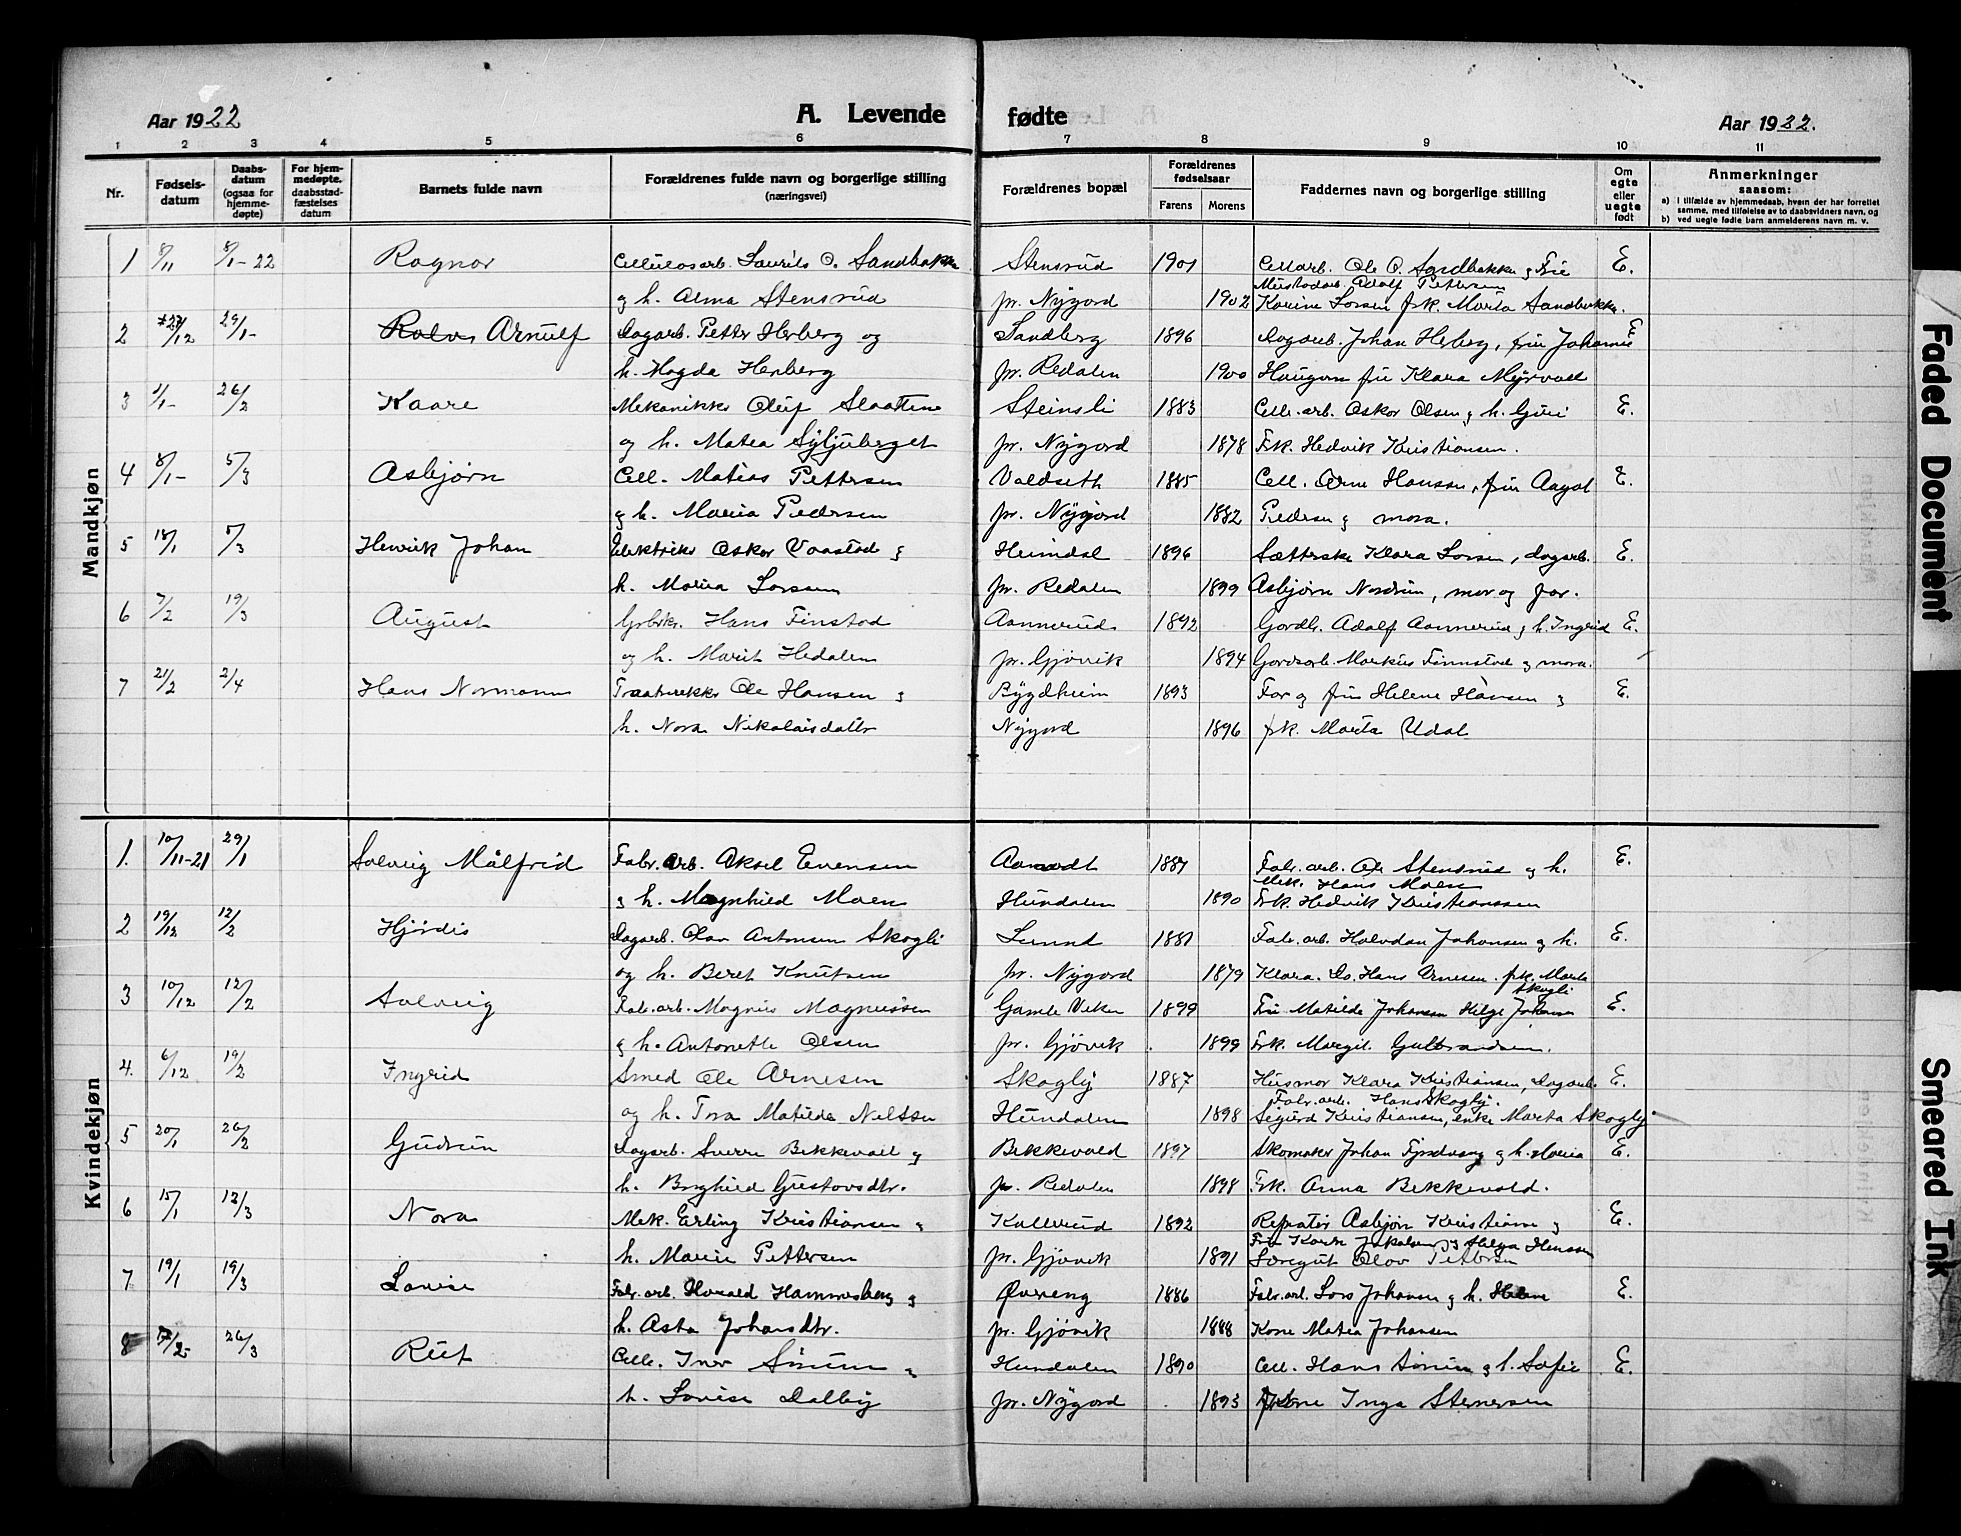 Aar 1922 A. Levende fødte Aar 1922.
1 2 3 4 5 6 7 8 9 10 11
Nr. Fødsels-datum Daabs-datum (ogsaa for hjemme-døpte) For hjem-medøpte, daabsstad-fæstelses datum Barnets fulde navn Forældrenes fulde navn og borgerlige stilling (næringsvei) Forældrenes bopæl Forældrenes fødselsaar Farens Morens Faddernes navn og borgerlige stilling Om egte eller uegte født Anmerkninger saasom: a) I tilfælde av hjemmedaab, hvem der har forrettet samme, med tilføielse av to daabsvidners navn, og b) ved uegte fødte barn anmelderens navn m. v.
Mandkjøn
1 8/11 8/1-22 Ragnar Cellulosarb. Laurits O. Sandbakke Stensrud 1901 Cellarb. Ole O. Sandbakke og Frie E.
Adolf Pettersen
og h. Alma Stensrud pr. Nygard 1902 Karine Larsen frk. Marta Sandbakke.
2 27/12 29/1- Arnulf Dagarb. Petter Herberg og Sandberg 1896 Dagarb. Johan Herberg, fru Johanne E
h. Magda Herberg pr. Redalen 1900 Haugom fru Klara Myrvold
3 2/1- 26/2 Kaare Mekaniker Oluf Slaattene Steinsli 1883 Cell. arb. Oskar Olsen og h. Guri E.
og h. Matea Syljuberget pr. Nygard 1878 Frk. Hedvik Kristiansen.
4 8/1- 5/3 Asbjørn Cell. Matias Pettersen Valdseth 1885 Cell. Arne Hansen, fru Aagot E.
og h. Maria Pedersen pr. Nygard 1882 Pedersen og mora.
5 18/1 7/3 Henrik Johan Elektriker Oskar Vaastad og Heimdal 1896 Sætterske Klara Larsen, dagarb. E.
h. Maria Larssen pr. Redalen 1899 Asbjørn Nordrum, mor og far.
6 7/2 19/3 August Grbrkr. Hans Finstad Aannerud 1892 Gardbr. Adolf Aannerud og h. Ingrid E.
og h. Marit Hedalen pr. Gjøvik 1894 Gardsarb. Markus Finnstad og mora.
7 21/2 2/4 Hans Normann Traatrekker Ole Hansen og Bygdheim 1893 Far og fru Helene Hansen og E.
h. Nora Nikolaisdatter Nygard 1896 frk. Marta Udal
Kvindekjøn
1. 10/11-21 29/1 Solveig Målfrid Fabr. arb. Aksel Evensen Aamodt 1887 Fabr. arb. Ole Stensrud og h. E.
Mek. Hans Moen
og h. Magnhild Moen Hundalen 1890 Frk. Hedvik Kristianssen
2 19/12 12/2 Hjørdis Dagarb. Olav Antonsen Skogli Lunnd 1881 Fabr. arb. Halvdan Johansen og h. E.
og h. Beret Knutsen pr. Nygard 1879 Klara. Do. Hans Arnesen. frk. Marta
Skogli
3 10/12 12/2 Solveig Fabr. arb. Magnus Magnussen Gamle Viken 1899 Fru Matilde Johansen Helge Johansen E.
og h. Antonette Olsen pr. Gjøvik 1899 Frk. Margit Gulbrandsen.
4. 6/12 19/2 Ingrid Smed Ole Arnesen Skogly 1887 Husmor Klara Kristiansen, Dagarb. E.
Fabr. arb. Hans Skogly.
og h. Tora Matilde Nilsen Hundalen 1898 Sigurd Kristiansen, enke Marta Skogly
5 20/1 26/2 Gudrun Dagarb. Sverre Bekkevold og Bekkevold 1897 Skomaker Johan og h. Maria E.
h. Borghild Gustavsdtr. pr. Redalen 1898 Frk. Anna Bekkevold.
6 15/1 12/3 Nora Mek. Erling Kristiansen og Kallerud 1892 Reparatør Asbjørn Kristiansen og E.
Fru Jakobsen og Helga Hanssen
h. Marie Pettersen pr. Gjøvik 1891 Læregut Olav Pettersen
7 19/1 19/3 Lovise Fabr. arb. Harald Hammersberg og Øvereng 1886 Fabr. arb. Lars Johansen og h. Helene E.
h. Asta Johansdtr. pr. Gjøvik 1888 Kone Matea Johansen
8 17/2- 26/3 Rut Cell. Iver Sørum og Hundalen 1890 Cell. Hans Sørum og h. Sofie E.
h. Lovise Dalby pr. Nygard 1893 Kone Inga Stenersen
Faded Document
Smeared Ink